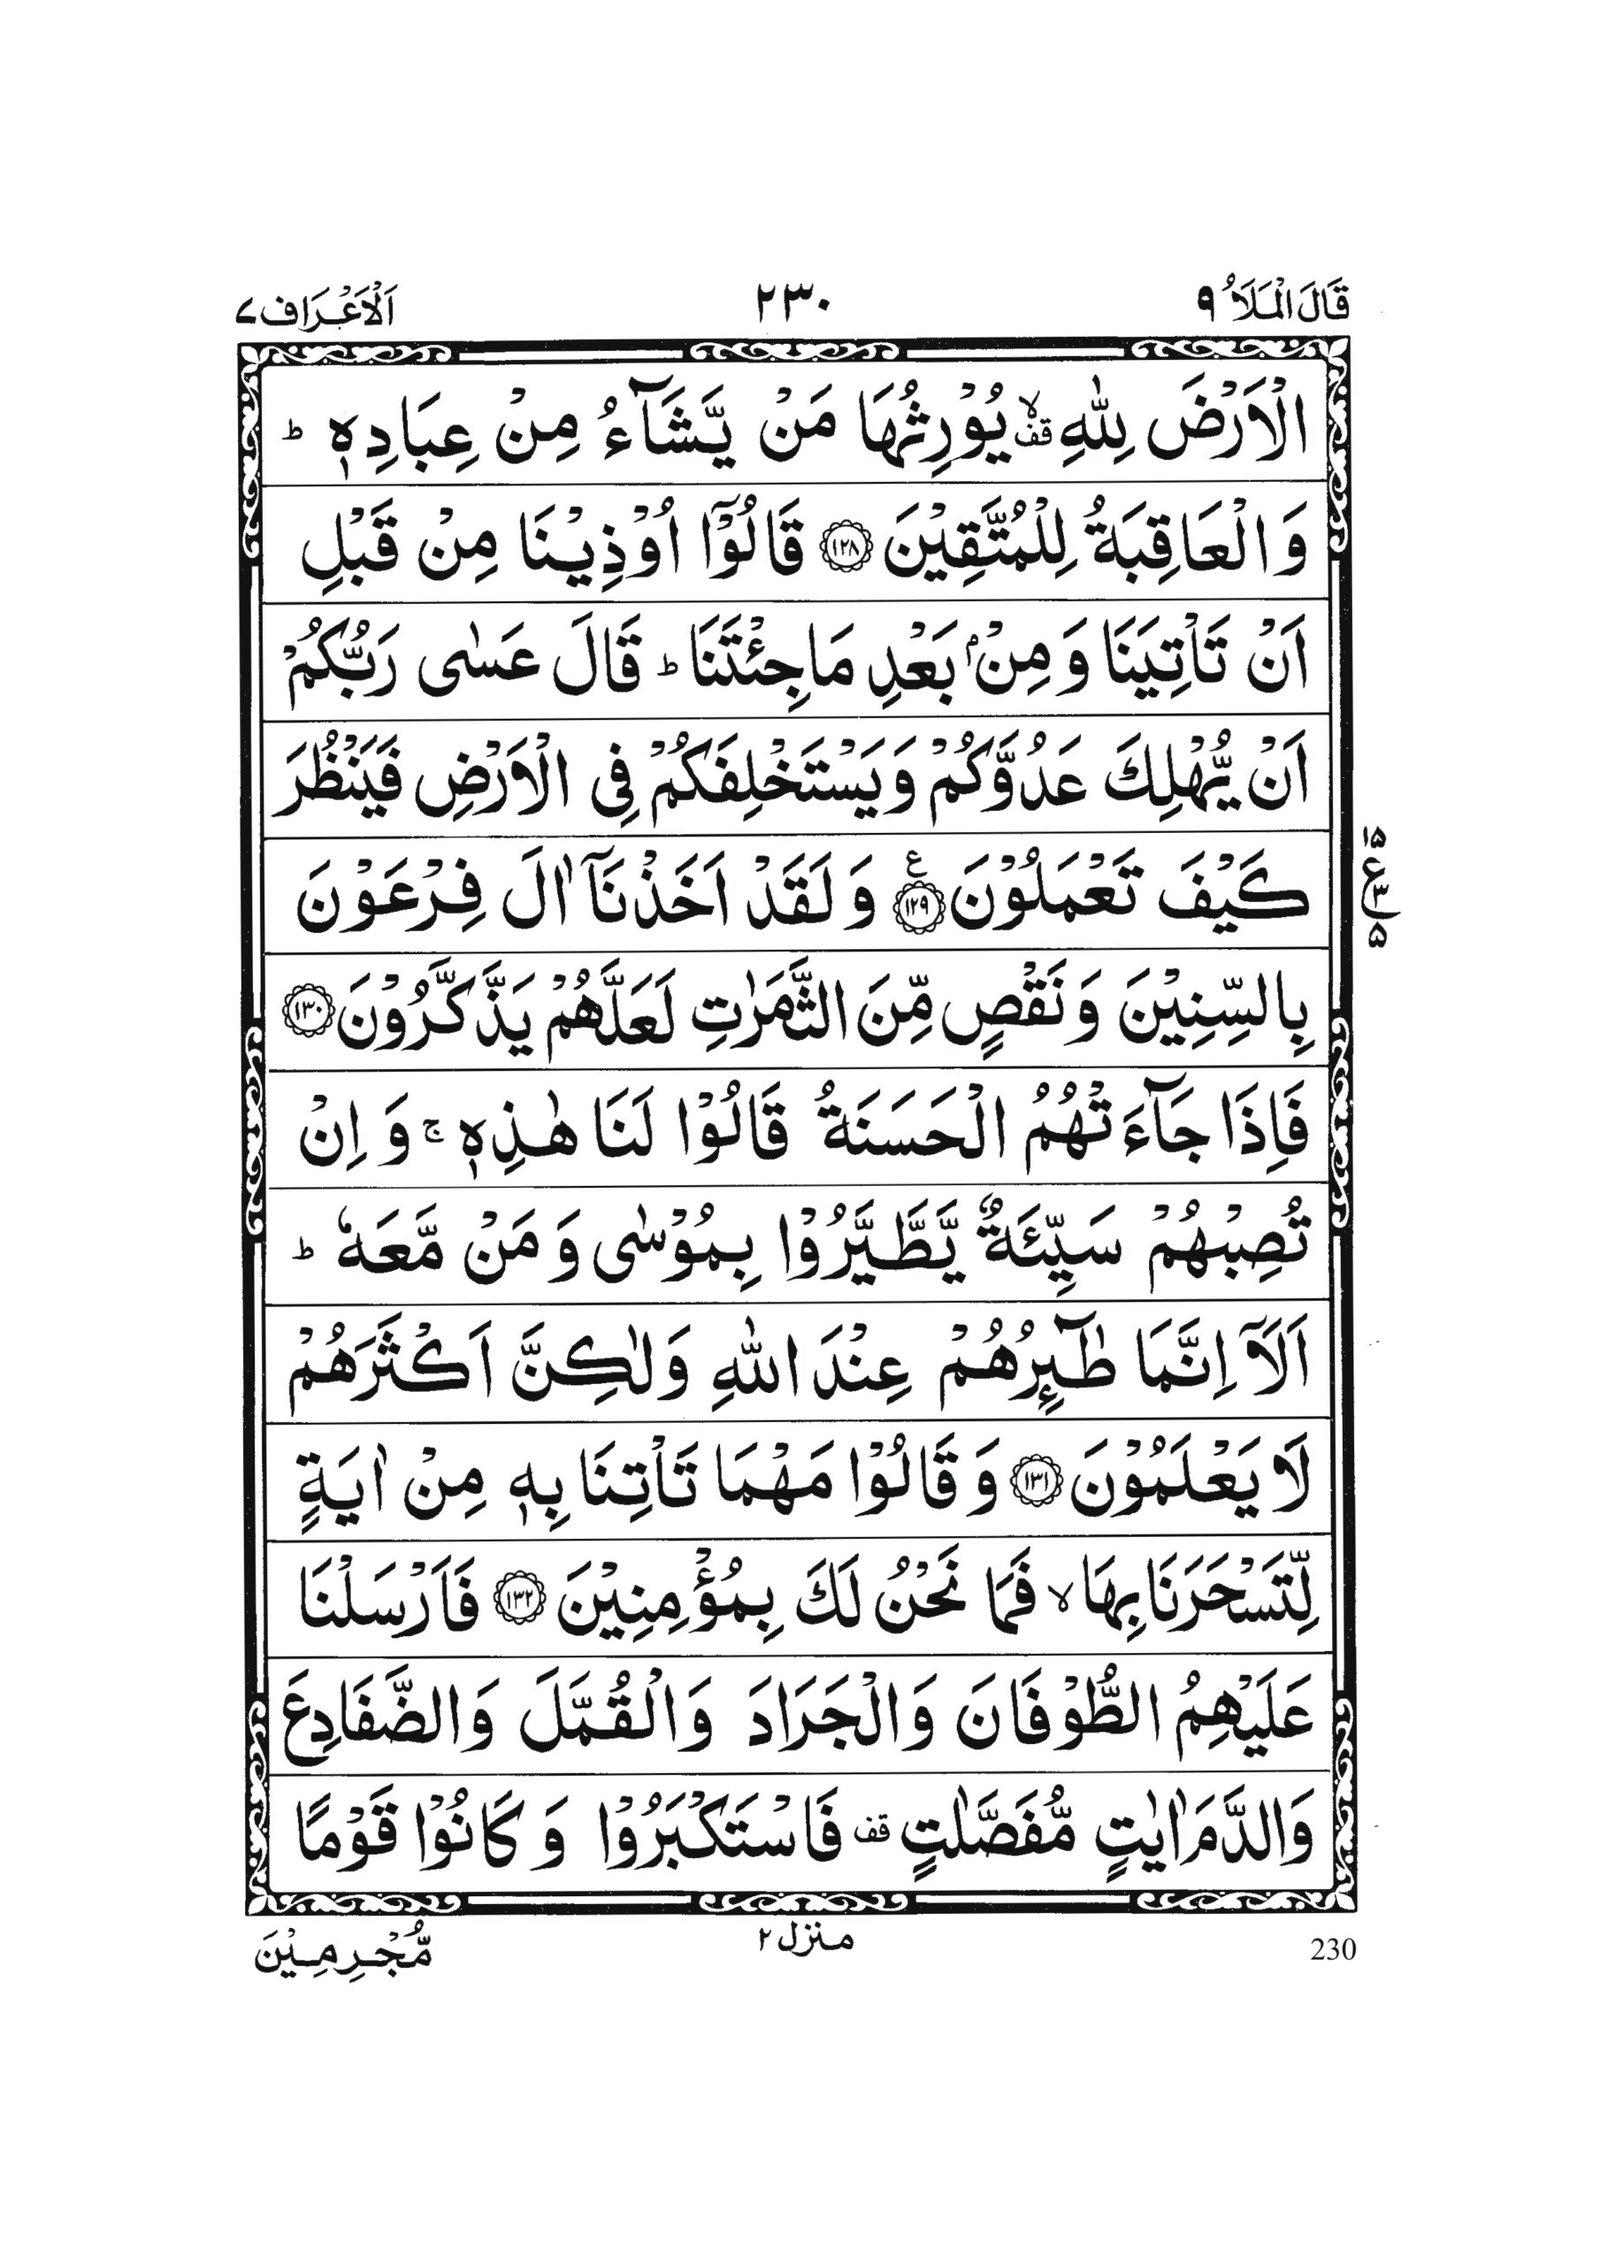 قَالَ الْمَلَاُ ٩ ٢٣٠ اَلْاَعْرَاف ٧
الْاَرْضَ لِلّٰهِ ۙقف يُوْرِثُهَا مَنْ يَّشَآءُ مِنْ عِبَادِهٖ ؕ
وَالْعَاقِبَةُ لِلْمُتَّقِيْنَ ١٢٨ قَالُوْۤا اُوْذِيْنَا مِنْ قَبْلِ
اَنْ تَاْتِيَنَا وَ مِنْۢ بَعْدِ مَا جِئْتَنَا ؕ قَالَ عَسٰى رَبُّكُمْ
اَنْ يُّهْلِكَ عَدُوَّكُمْ وَيَسْتَخْلِفَكُمْ فِى الْاَرْضِ فَيَنْظُرَ
كَيْفَ تَعْمَلُوْنَ ١٢٩ ع وَ لَقَدْ اَخَذْنَاۤ اٰلَ فِرْعَوْنَ
١٥ ع ٣ ٥
بِالسِّنِيْنَ وَ نَقْصٍ مِّنَ الثَّمَرٰتِ لَعَلَّهُمْ يَذَّكَّرُوْنَ ١٣٠
فَاِذَا جَآءَتْهُمُ الْحَسَنَةُ قَالُوْا لَنَا هٰذِهٖ ۚ وَ اِنْ
تُصِبْهُمْ سَيِّئَةٌ يَّطَّيَّرُوْا بِمُوْسٰى وَ مَنْ مَّعَهٗ ؕ
اَلَاۤ اِنَّمَا طٰٓئِرُهُمْ عِنْدَ اللّٰهِ وَلٰكِنَّ اَكْثَرَهُمْ
لَا يَعْلَمُوْنَ ١٣١ وَ قَالُوْا مَهْمَا تَاْتِنَا بِهٖ مِنْ اٰيَةٍ
لِّتَسْحَرَنَا بِهَا ۙ فَمَا نَحْنُ لَكَ بِمُؤْمِنِيْنَ ١٣٢ فَاَرْسَلْنَا
عَلَيْهِمُ الطُّوْفَانَ وَالْجَرَادَ وَالْقُمَّلَ وَالضَّفَادِعَ
وَالدَّمَ اٰيٰتٍ مُّفَصَّلٰتٍ قف فَاسْتَكْبَرُوْا وَ كَانُوْا قَوْمًا
مُّجْرِمِيْنَ منزل ٢ 230